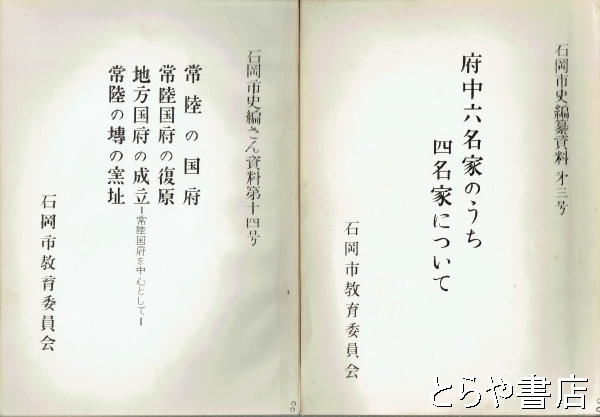 石岡市史編纂資料 才三号
府中六名家のうち
四名家について
石岡市教育委員会
石岡市史編さん資料第十四号
常陸の国府
常陸国府の復原
地方国府の成立ー常陸国府を中心としてー
常陸の塼の窯址
石岡市教育委員会
とらや書店